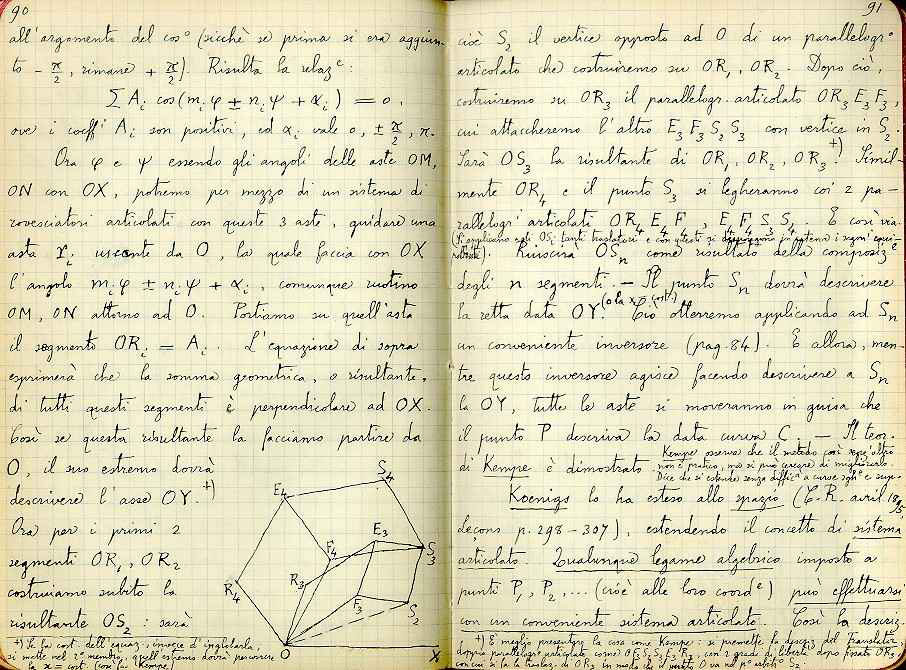 90
all'argomento del cos° (sicchè se prima si era aggiun-
to - π/2, rimane + π/2). Risulta la relaz^e:
∑ A_i cos(m_i φ ± n_i ψ + α_i) = 0,
ove i coeff^i A_i son positivi, ed α_i vale 0, ± π/2, π.
Ora φ e ψ essendo gli angoli delle aste OM,
ON con OX, potremo per mezzo di un sistema di
rovesciatori articolati con queste 3 aste, guidare una
asta r_i uscente da O, la quale faccia con OX
l'angolo m_i φ ± n_i ψ + α_i, comunque ruotino
OM, ON attorno ad O. Portiamo su quell'asta
il segmento OR_i = A_i. L'equazione di sopra
esprimerà che la somma geometrica, o risultante,
di tutti questi segmenti è perpendicolare ad OX.
Così se questa risultante la facciamo partire da
O, il suo estremo dovrà
descrivere l'asse OY.+)
Ora per i primi 2
segmenti OR_1, OR_2
costruiamo subito la
risultante OS_2: sarà
E_4
S_4
E_3
F_4
S_3
R_4
R_3
F_3
S_2
O
X
+) Se la cost. dell'equaz., invece d'inglobarla,
si mette nel 2° membro, quell'estremo dovrà percorrere
la x = cost. (così la Kempe)
91
cioè S_2 il vertice opposto ad O di un parallelogr°
articolato che costruiremo su OR_1, OR_2. Dopo ciò,
costruiremo su OR_3 il parallelogr. articolato OR_3 E_3 F_3,
cui attaccheremo l'altro E_3 F_3 S_2 S_3 con vertice in S_2.
Sarà OS_3 la risultante di OR_1, OR_2, OR_3.+) Simil-
mente OR_4 e il punto S_3 si legheranno coi 2 pa-
rallelogr^i articolati OR_4 E_4 F_4, E_4 F_4 S_3 S_4. E così via.
(Si applicano agli OS_i tanti traslatori e con questi si
Riuscirà OS_n come risultato della composiz^e
degli n segmenti. — Il punto S_n dovrà descrivere
la retta data OY (o la x = cost.). Ciò otterremo applicando ad S_n
un conveniente inversore (pag. 84). E allora, men-
tre questo inversore agisce facendo descrivere a S_n
la OY, tutte le aste si moveranno in guisa che
il punto P descriva la data curva C. — Il teor.
di Kempe è dimostrato.
Kempe osserva che il metodo così
non è pratico, ma si può cercare di migliorarlo.
Dice che si estende senza diffic^tà a curve sgh^e e sup.
Koenigs lo ha esteso allo spazio (C. R. avril 1895
Leçons p. 298-307), estendendo il concetto di sistema
articolato. Qualunque legame algebrico imposto a
punti P_1, P_2, ... (cioè alle loro coord^e) può effettuarsi
con un conveniente sistema articolato. Così la descriz.
+) E' meglio presentare la cosa come Kempe: si premette la descriz. del Translator
doppio parallelogr° articolato come
con cui si fa la traslaz. di OR_3 in modo che il punto O va nel p° S_2.